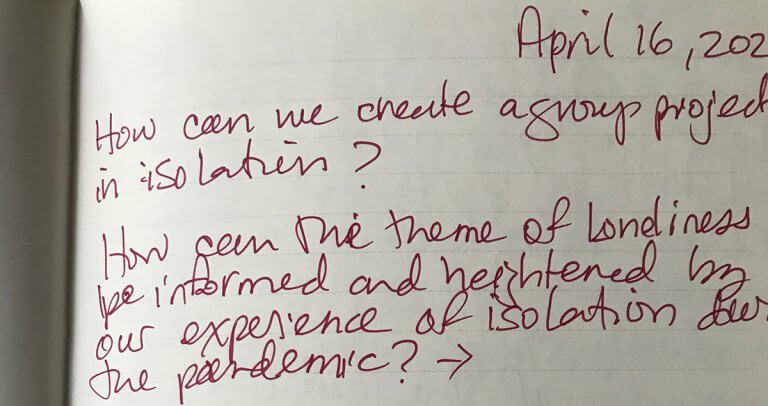 April 16, 202
How can we create a group project
in isolation?
How can the theme of loneliness
be informed and heightened by
our experience of isolation
the pandemic? →